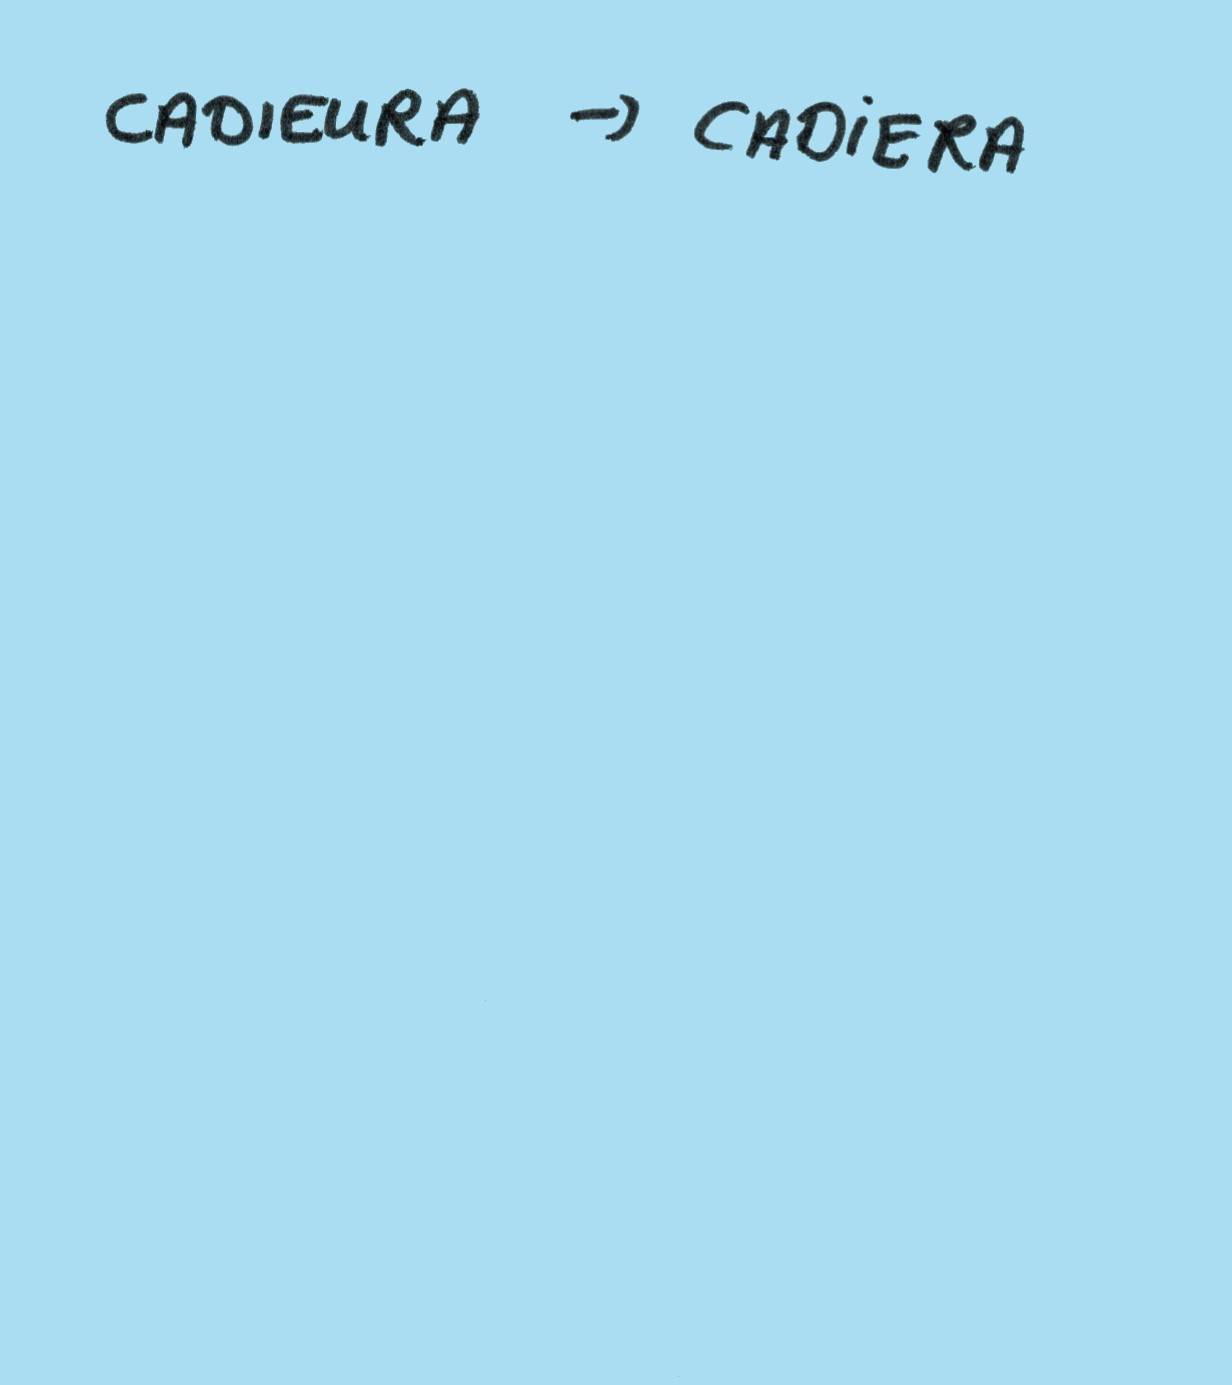 CADIEURA -> CADiERA